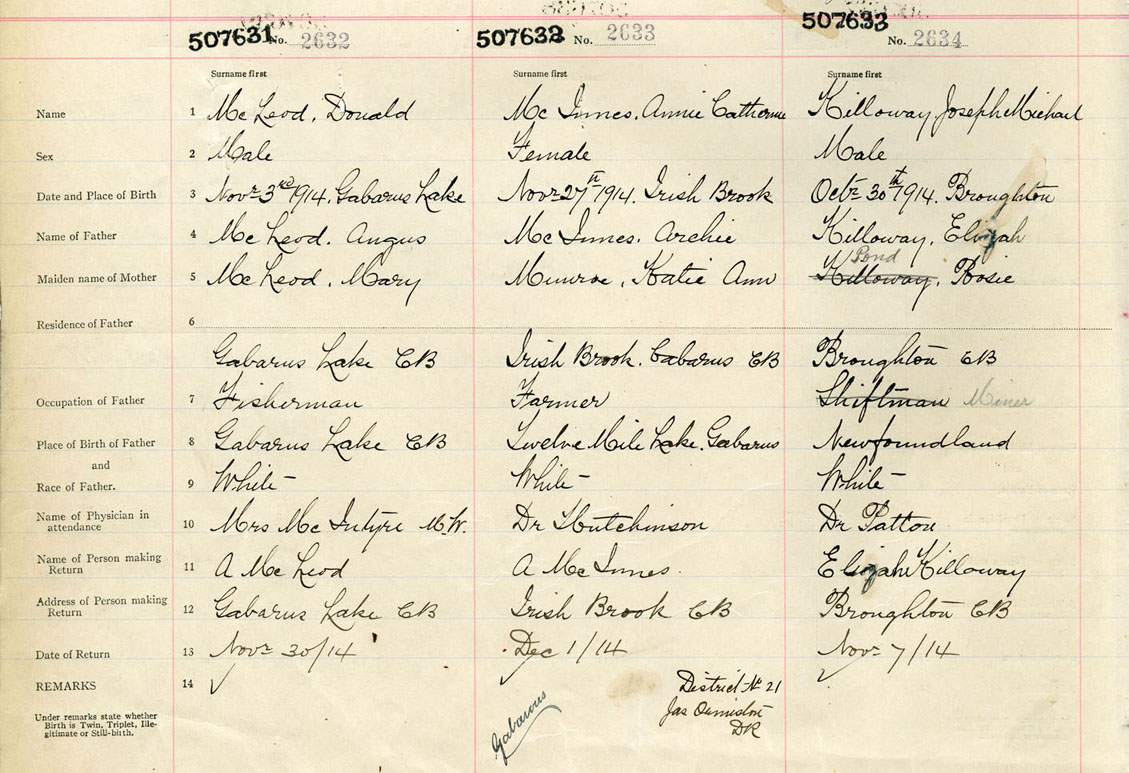 507631 No. 2632 507632 No. 2633 507633 No. 2634
Surname first Surname first Surname first
Name 1 Mc Leod, Donald Mc Innes, Annie Catherine Killoway Joseph Michael
Sex 2 Male Female Male
Date and Place of Birth 3 Novr 3rd 1914. Gabarus Lake Novr 27th 1914. Irish Brook Octr 30th 1914. Broughton
Name of Father 4 Mc Leod. Angus Mc Innes. Archie Killoway, Elizah
Pond
Maiden name of Mother 5 Mc Leod, Mary Munroe, Katie Ann Killoway, Rosie
Residence of Father 6
Gabarus Lake CB Irish Brook. Gabarus CB Broughton CB
Occupation of Father 7 Fisherman Farmer Shiftman Miner
Place of Birth of Father 8 Gabarus Lake CB Twelve Mile Lake. Gabarus Newfoundland
and
Race of Father. 9 White White White
Name of Physician in
attendance 10 Mrs Mc Intyre M.W. Dr Hutchinson Dr Patton
Name of Person making
Return 11 A Mc Leod A Mc Innes. Elizah Killoway
Address of Person making
Return 12 Gabarus Lake CB Irish Brook CB Broughton CB
Date of Return 13 Novr 30/14 Dec 1/14 Novr 7/14
REMARKS 14 ✓ ✓ ✓
District No 21
Jas Ormiston
DR
Gabarous
Under remarks state whether
Birth is Twin, Triplet, Ille-
gitimate or Still-birth.